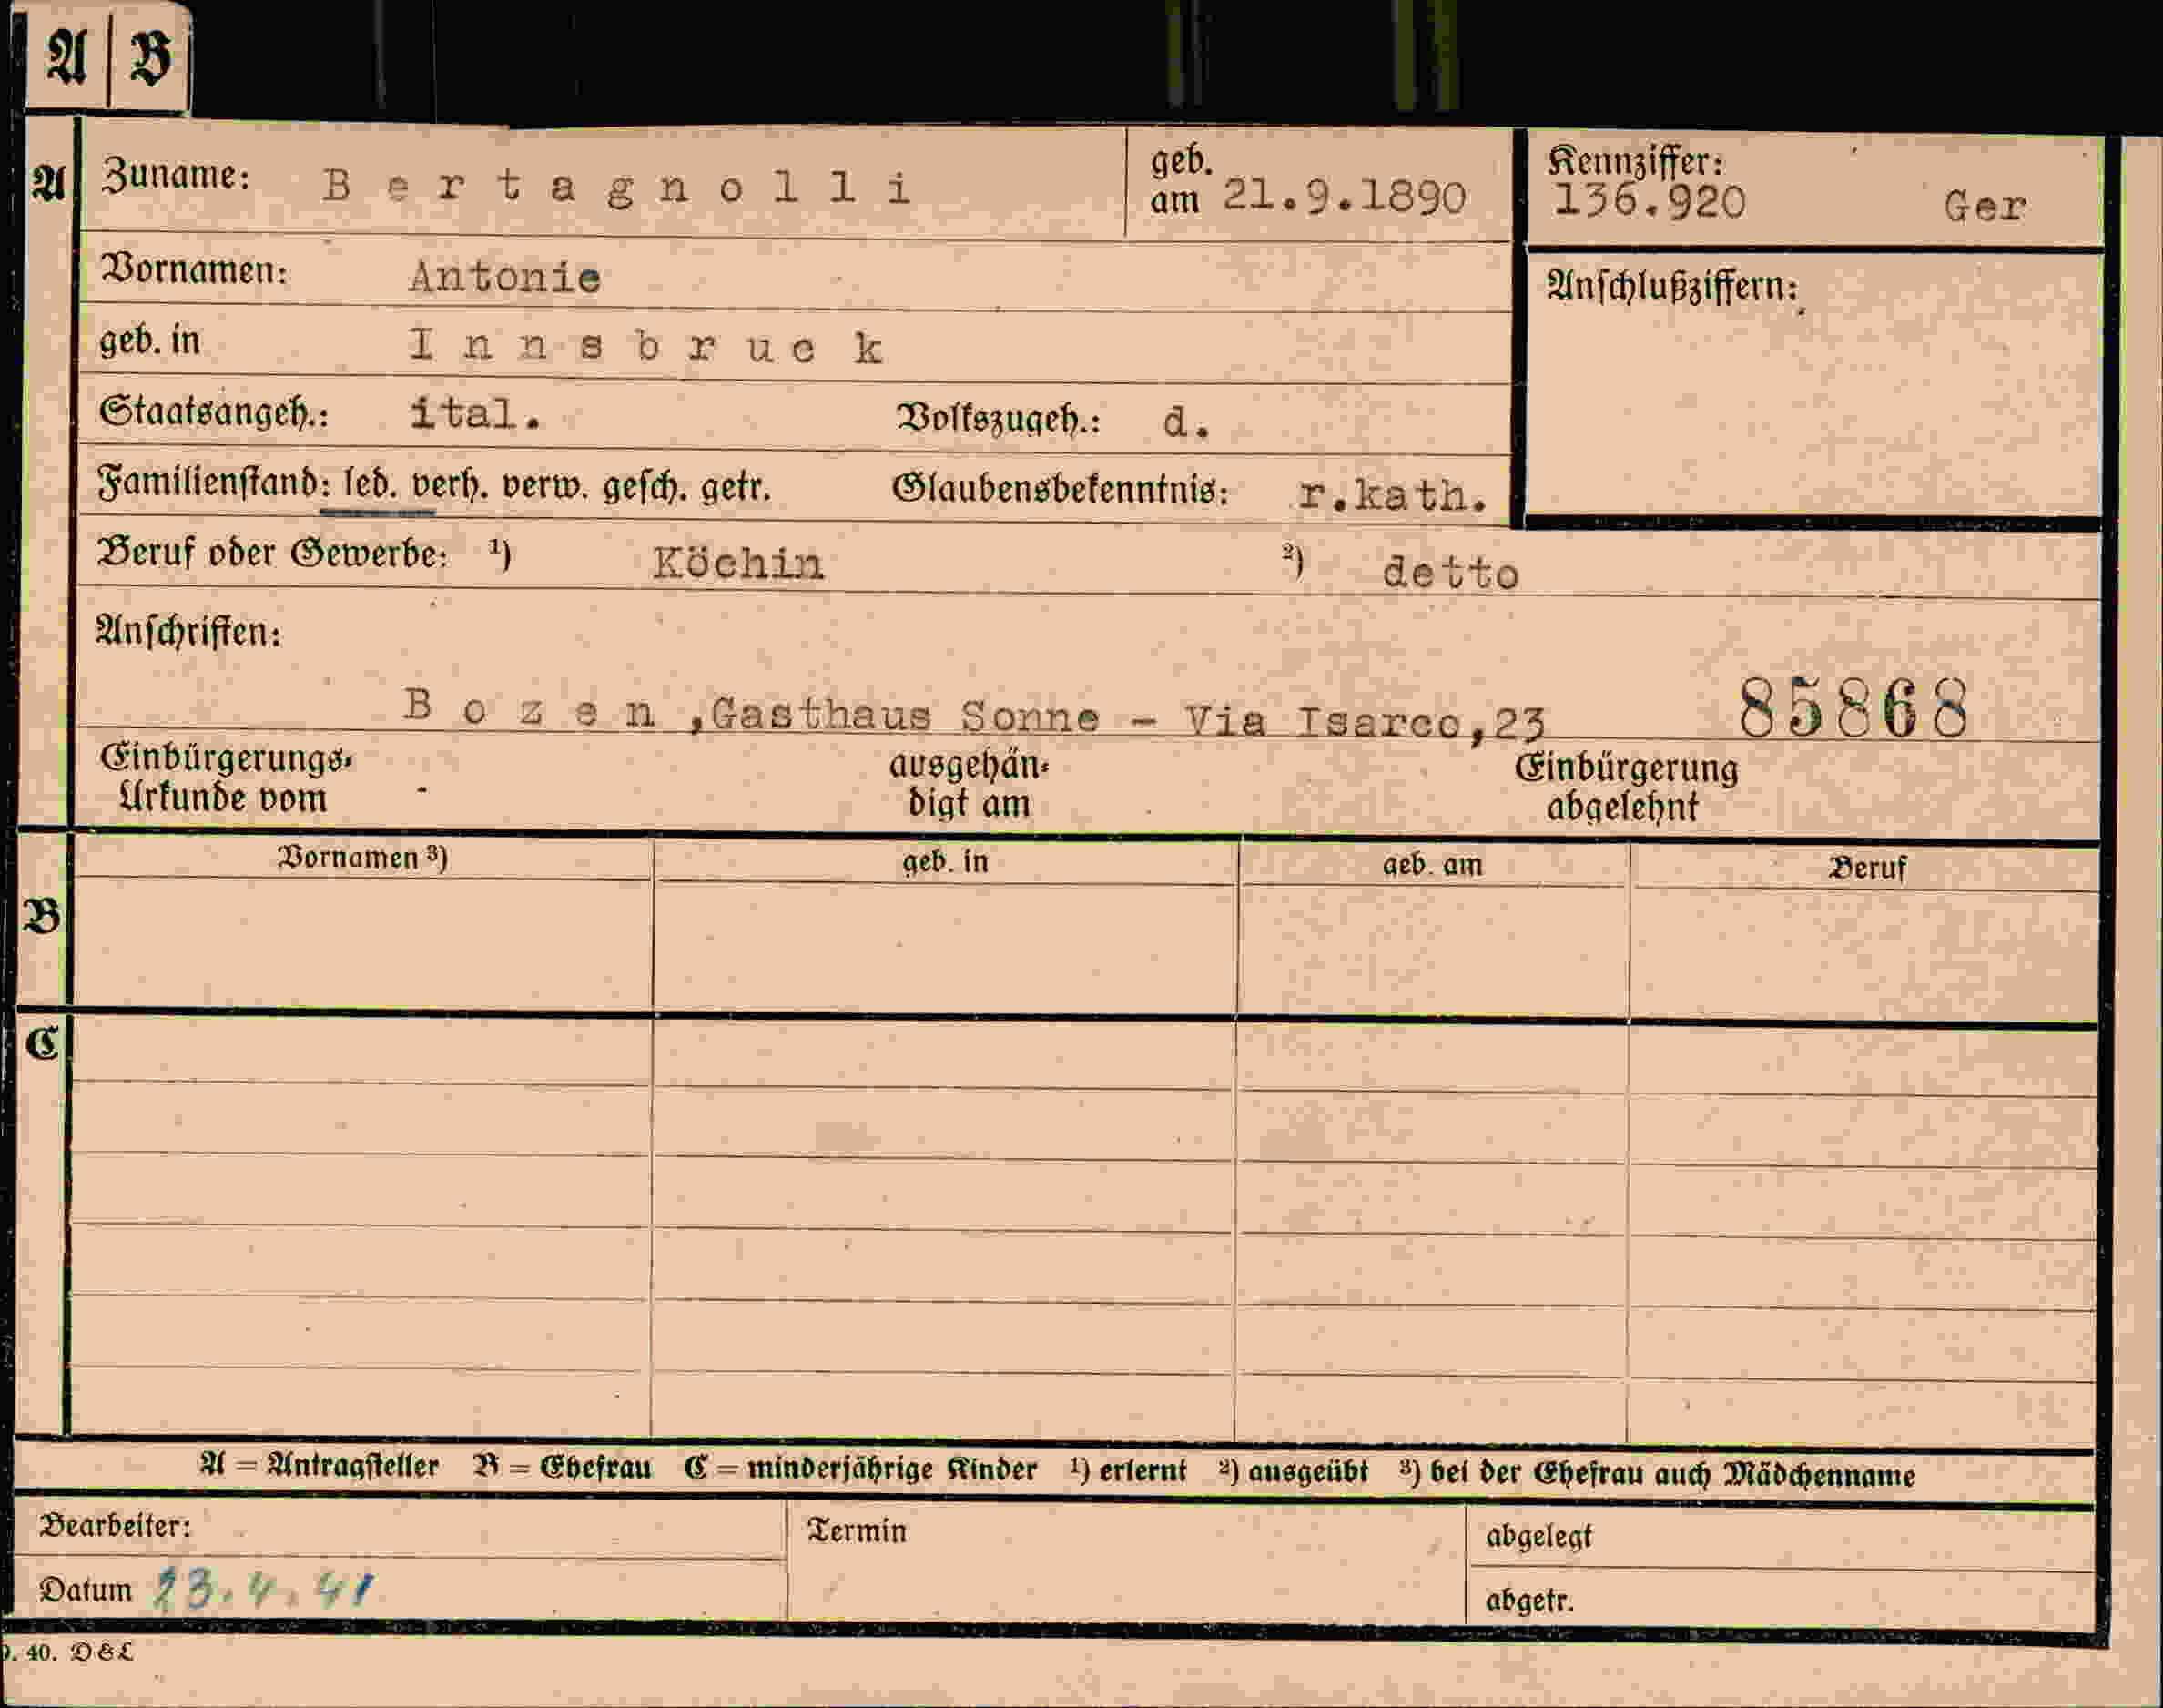 A | B
A Zuname: Bertagnolli geb. am 21.9.1890 Kennziffer: 136.920 Ger
Vornamen: Antonie Anschlußziffern:
geb. in Innsbruck
Staatsangeh.: ital. Volkszugeh.: d.
Familienstand: led. verh. verw. gesch. getr. Glaubensbekenntnis: r.kath.
Beruf oder Gewerbe: ¹) Köchin ²) detto
Anschriften:
Bozen,Gasthaus Sonne - Via Isarco,23 85868
Einbürgerungs- ausgehän- Einbürgerung
Urkunde vom - digt am abgelehnt
Vornamen ³) geb. in geb. am Beruf
B
C
A = Antragsteller B = Ehefrau C = minderjährige Kinder ¹) erlernt ²) ausgeübt ³) bei der Ehefrau auch Mädchenname
Bearbeiter: Termin abgelegt
Datum 23.4.41 abgetr.
. 40. D&L